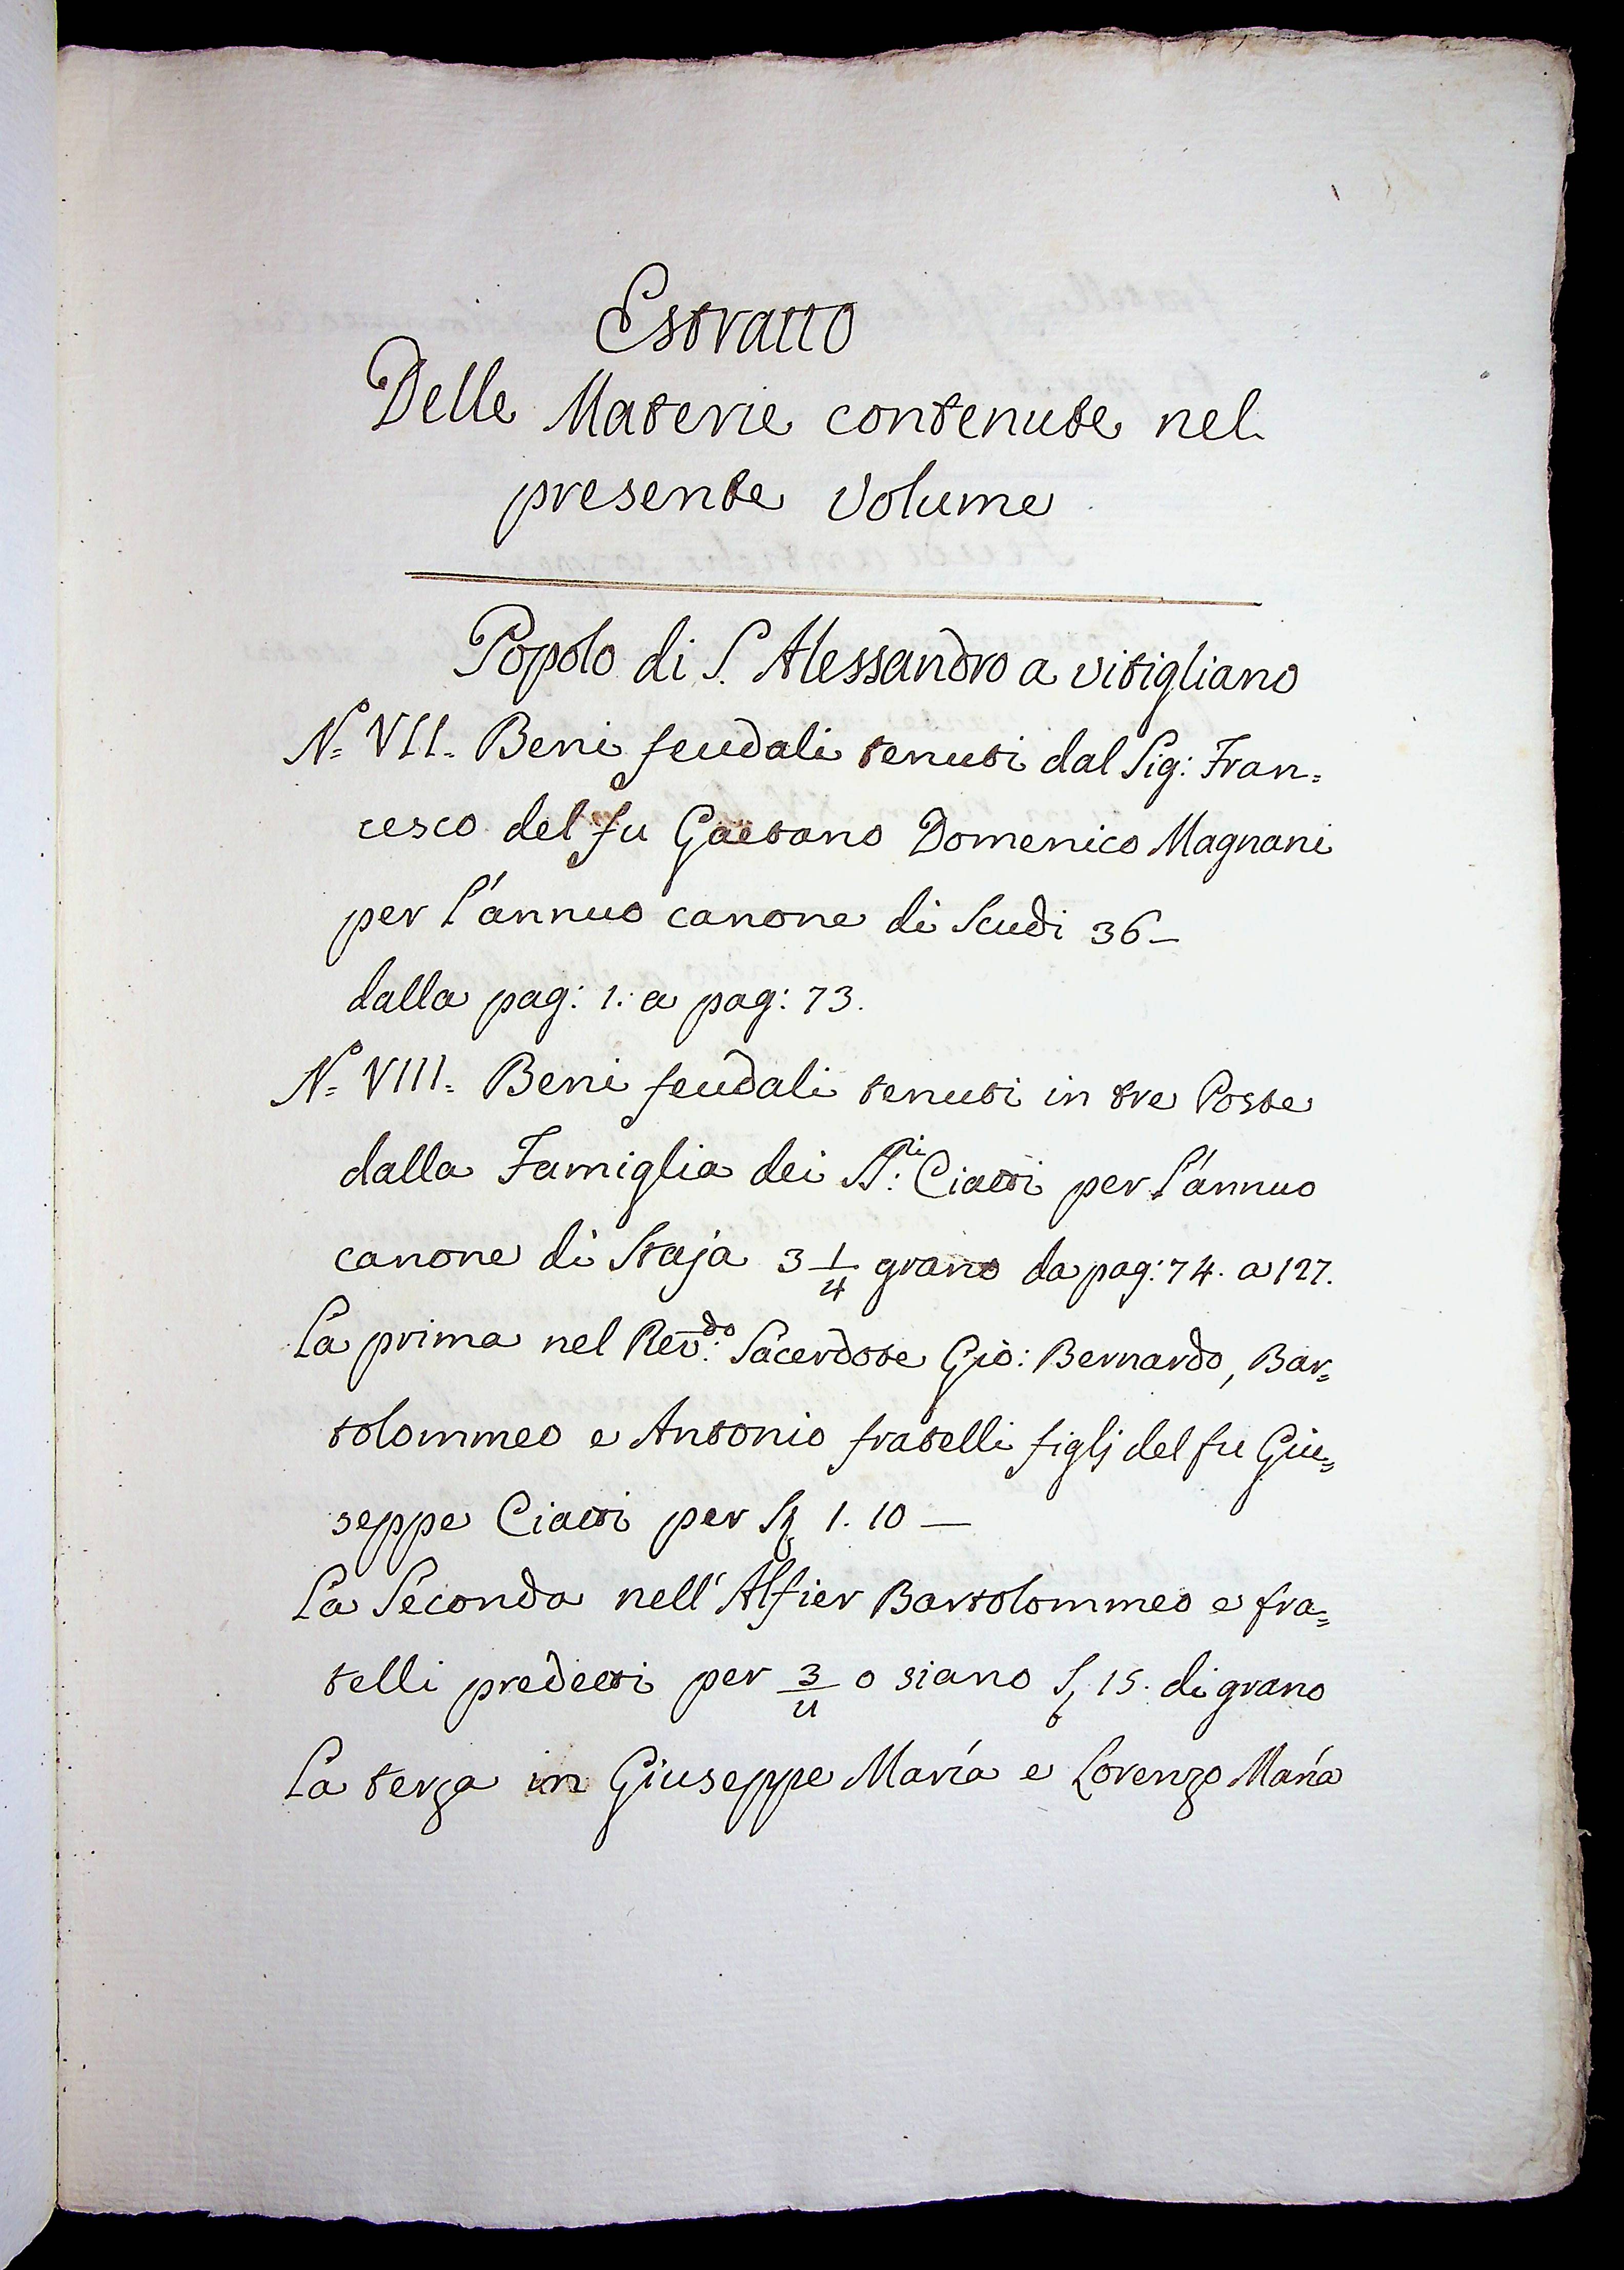 Estratto
Delle Materie contenute nel
presente Volume
Popolo di S. Alessandro a Vitigliano
N.º VII. Beni feudali tenuti dal Sig: Fran=
cesco del fu Gaetano Domenico Magnani
per l'annuo canone di Scudi 36 —
dalla pag: 1: a pag: 73.
N.º VIII. Beni feudali tenuti in tre Poste
dalla Famiglia dei SS:ri Ciatti per l'annuo
canone di Staja 3 1/4 grano da pag: 74. a 127.
La prima nel Rev:do Sacerdote Gio: Bernardo, Bar=
tolommeo e Antonio fratelli figlj del fu Giu=
seppe Ciatti per 1. 10 —
La Seconda nell' Alfier Bartolommeo e fra=
telli predetti per 3/4 o siano 15. di grano
La terza in Giuseppe Maria e Lorenzo Maria